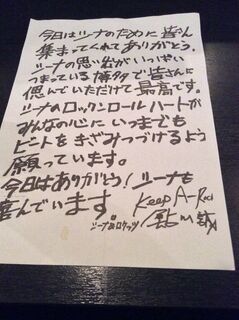 今日はシーナのために皆さん
集まってくれてありがとう。
シーナの思い出がいっぱい
つまっている博多で皆さんに
偲んでいただけて最高です。
シーナのロックンロールハートが
みんなの心にいつまでも
ヒントをきざみつづけるよう
願っています。
今日はありがとう！シーナも
喜んでいます。
Keep A-Rock
シーナ&ロケッツ 鮎川誠